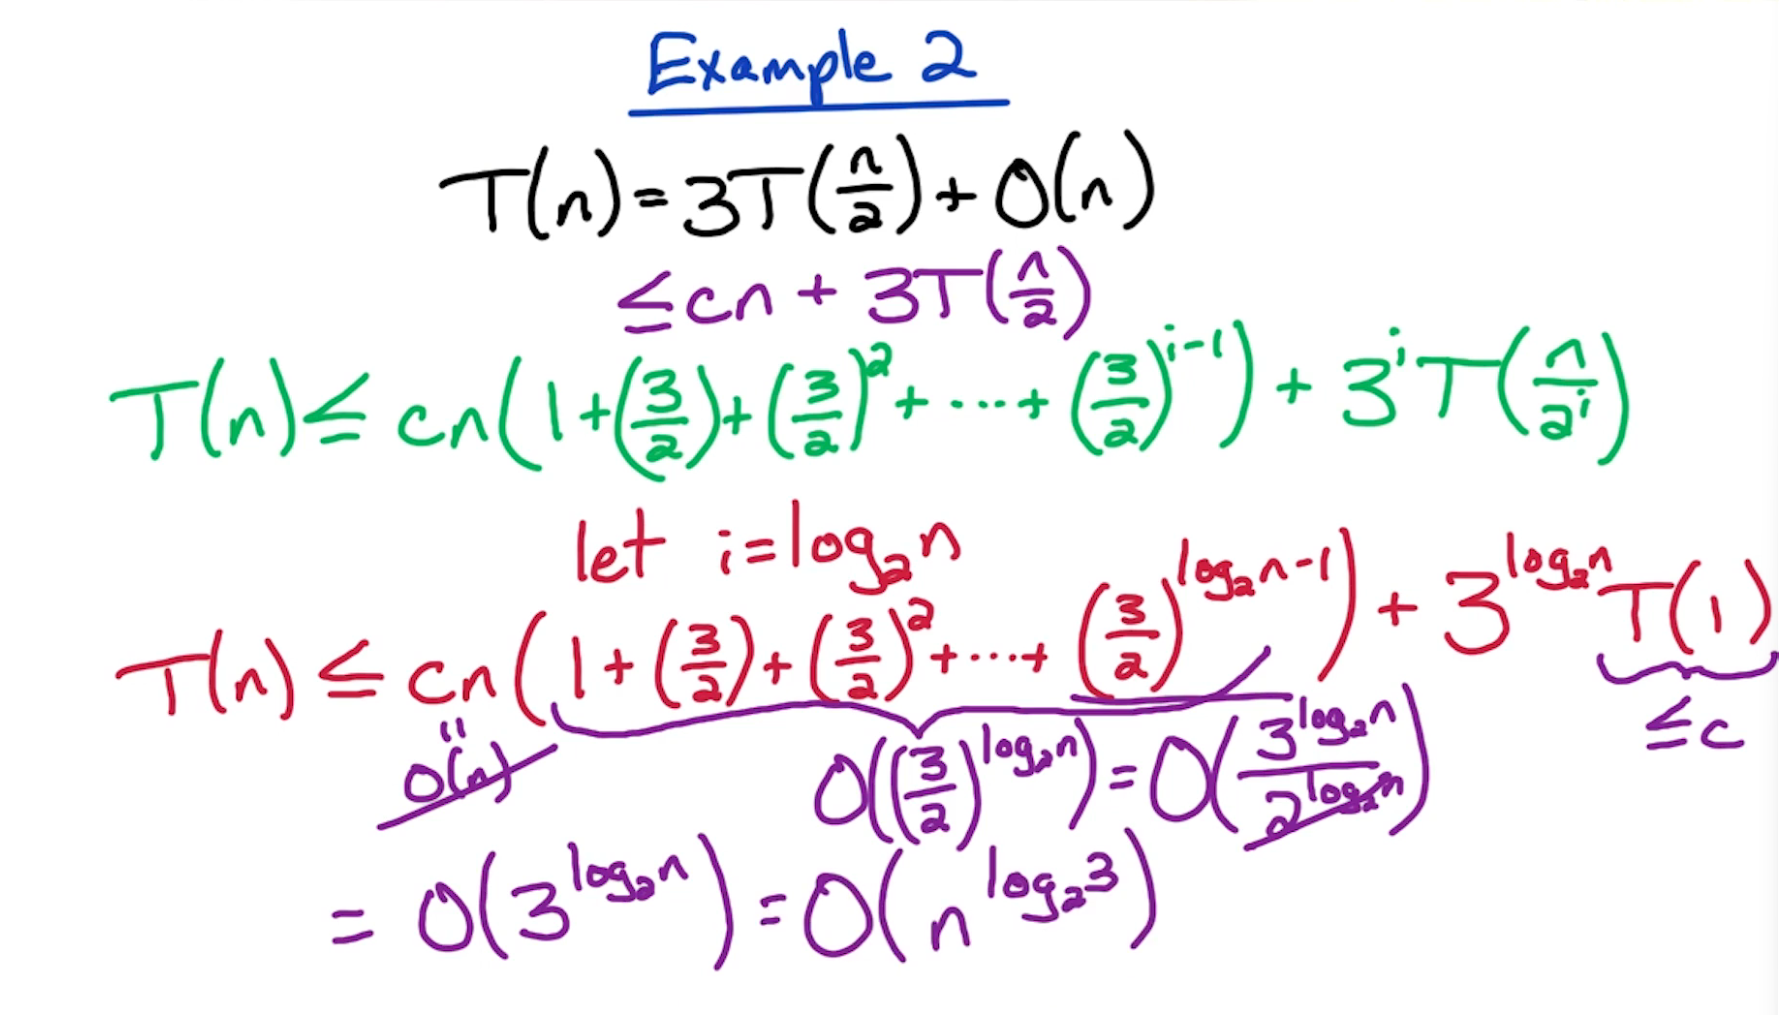 Example 2
T(n) = 3T(n/2) + O(n)
≤ cn + 3T(n/2)
T(n) ≤ cn(1 + (3/2) + (3/2)² + ⋯ + (3/2)^(i-1)) + 3^i T(n/2^i)
let i = log₂n
T(n) ≤ cn(1 + (3/2) + (3/2)² + ⋯ + (3/2)^(log₂n-1)) + 3^(log₂n) T(1)
≤ c
" O(n)
O((3/2)^(log₂n)) = O(3^(log₂n)/2^(log₂n))
= O(3^(log₂n)) = O(n^(log₂3))